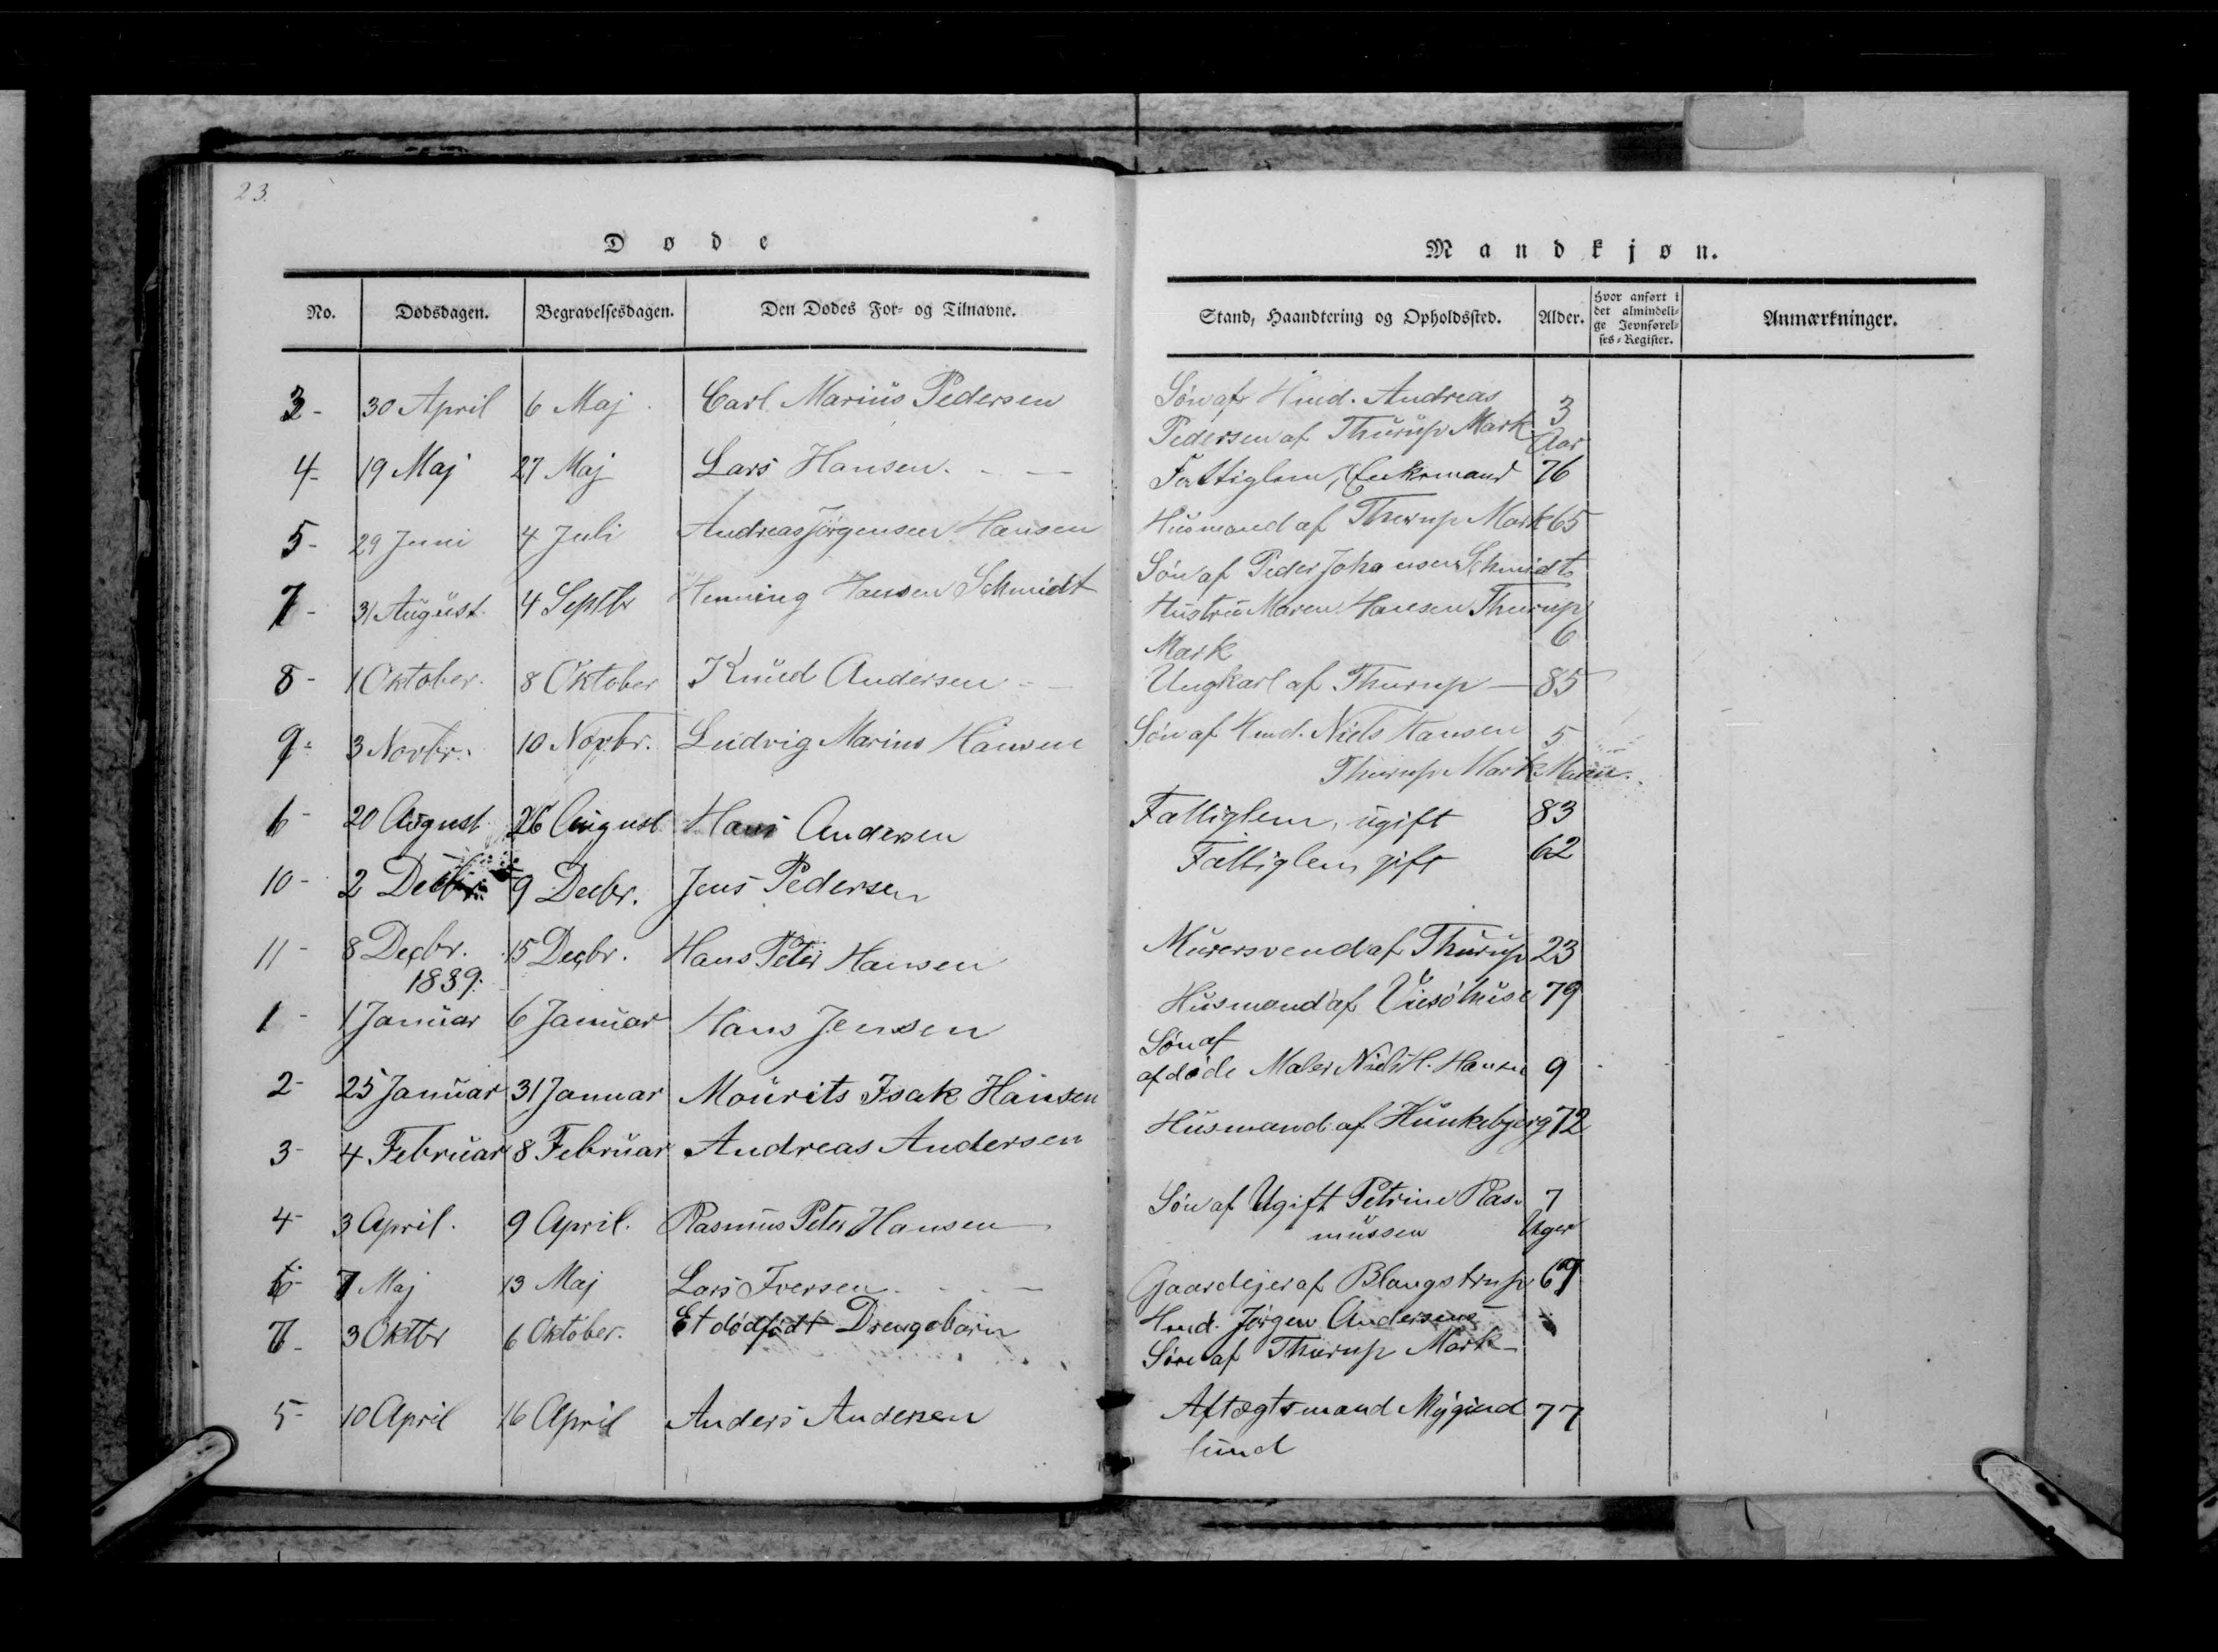 23.
Døde
Mandkjøn.
No. Dødsdagen. Begravelsesdagen. Den Dødes For- og Tilnavne. Stand, Haandtering og Opholdssted. Alder. Hvor anført i det almindelige Jevnførelses-Register. Anmærkninger.
3- 30 April 6 Maj. Carl Marius Pedersen Søn af Hmd. Andreas 3
Pedersen af Thurup Mark Aar
4- 19 Maj 27 Maj Lars Hansen. Fattiglem, Enkemand 76
5- 29 Juni 4 Juli Andreas Jörgensen Hansen Husmand af Thurup Mark 65
Søn af Peder Johansen Schmidts
7- 31 August 4 Septbr Henning Hansen Schmidt Hustru Maren Hansen Thurup
Mark 6
8- 1 Oktober. 8 Oktober Knud Andersen Ungkarl af Thurup — 85
9- 3 Novbr. 10 Novbr. Ludvig Marius Hansen Søn af Hmd. Niels Hansen 5
Thurup Mark
6- 20 August 26 August Hans Andersen Fattiglem, ugift 83
10- 2 Decbr. 9 Decbr. Jens Pedersen Fattiglem gift 62
11- 8 Decbr. 15 Decbr. Hans Peter Hansen Murersvend af Thurup 23
1889.
1- 1 Januar 6 Januar Hans Jensen Husmand af 79
Søn af
2- 25 Januar 31 Januar Mourits Isak Hansen afdøde Maler Niels H. Hansen 9
3- 4 Februar 8 Februar Andreas Andersen Husmand af Hunkebjerg 72
4- 3 April. 9 April. Rasmus Peter Hansen Søn af Ugift Petrine Ras- 7
mussen Uger
6- 7 Maj 13 Maj Lars Iversen Gaardejer af Blangstrup 67
7- 3 Oktbr 6 Oktober. Et dødfødt Drengebarn Hmd. Jørgen Andersens
Søn af Thurup Mark
5- 10 April 16 April Anders Andersen Aftægtsmand Mygind 77
lund